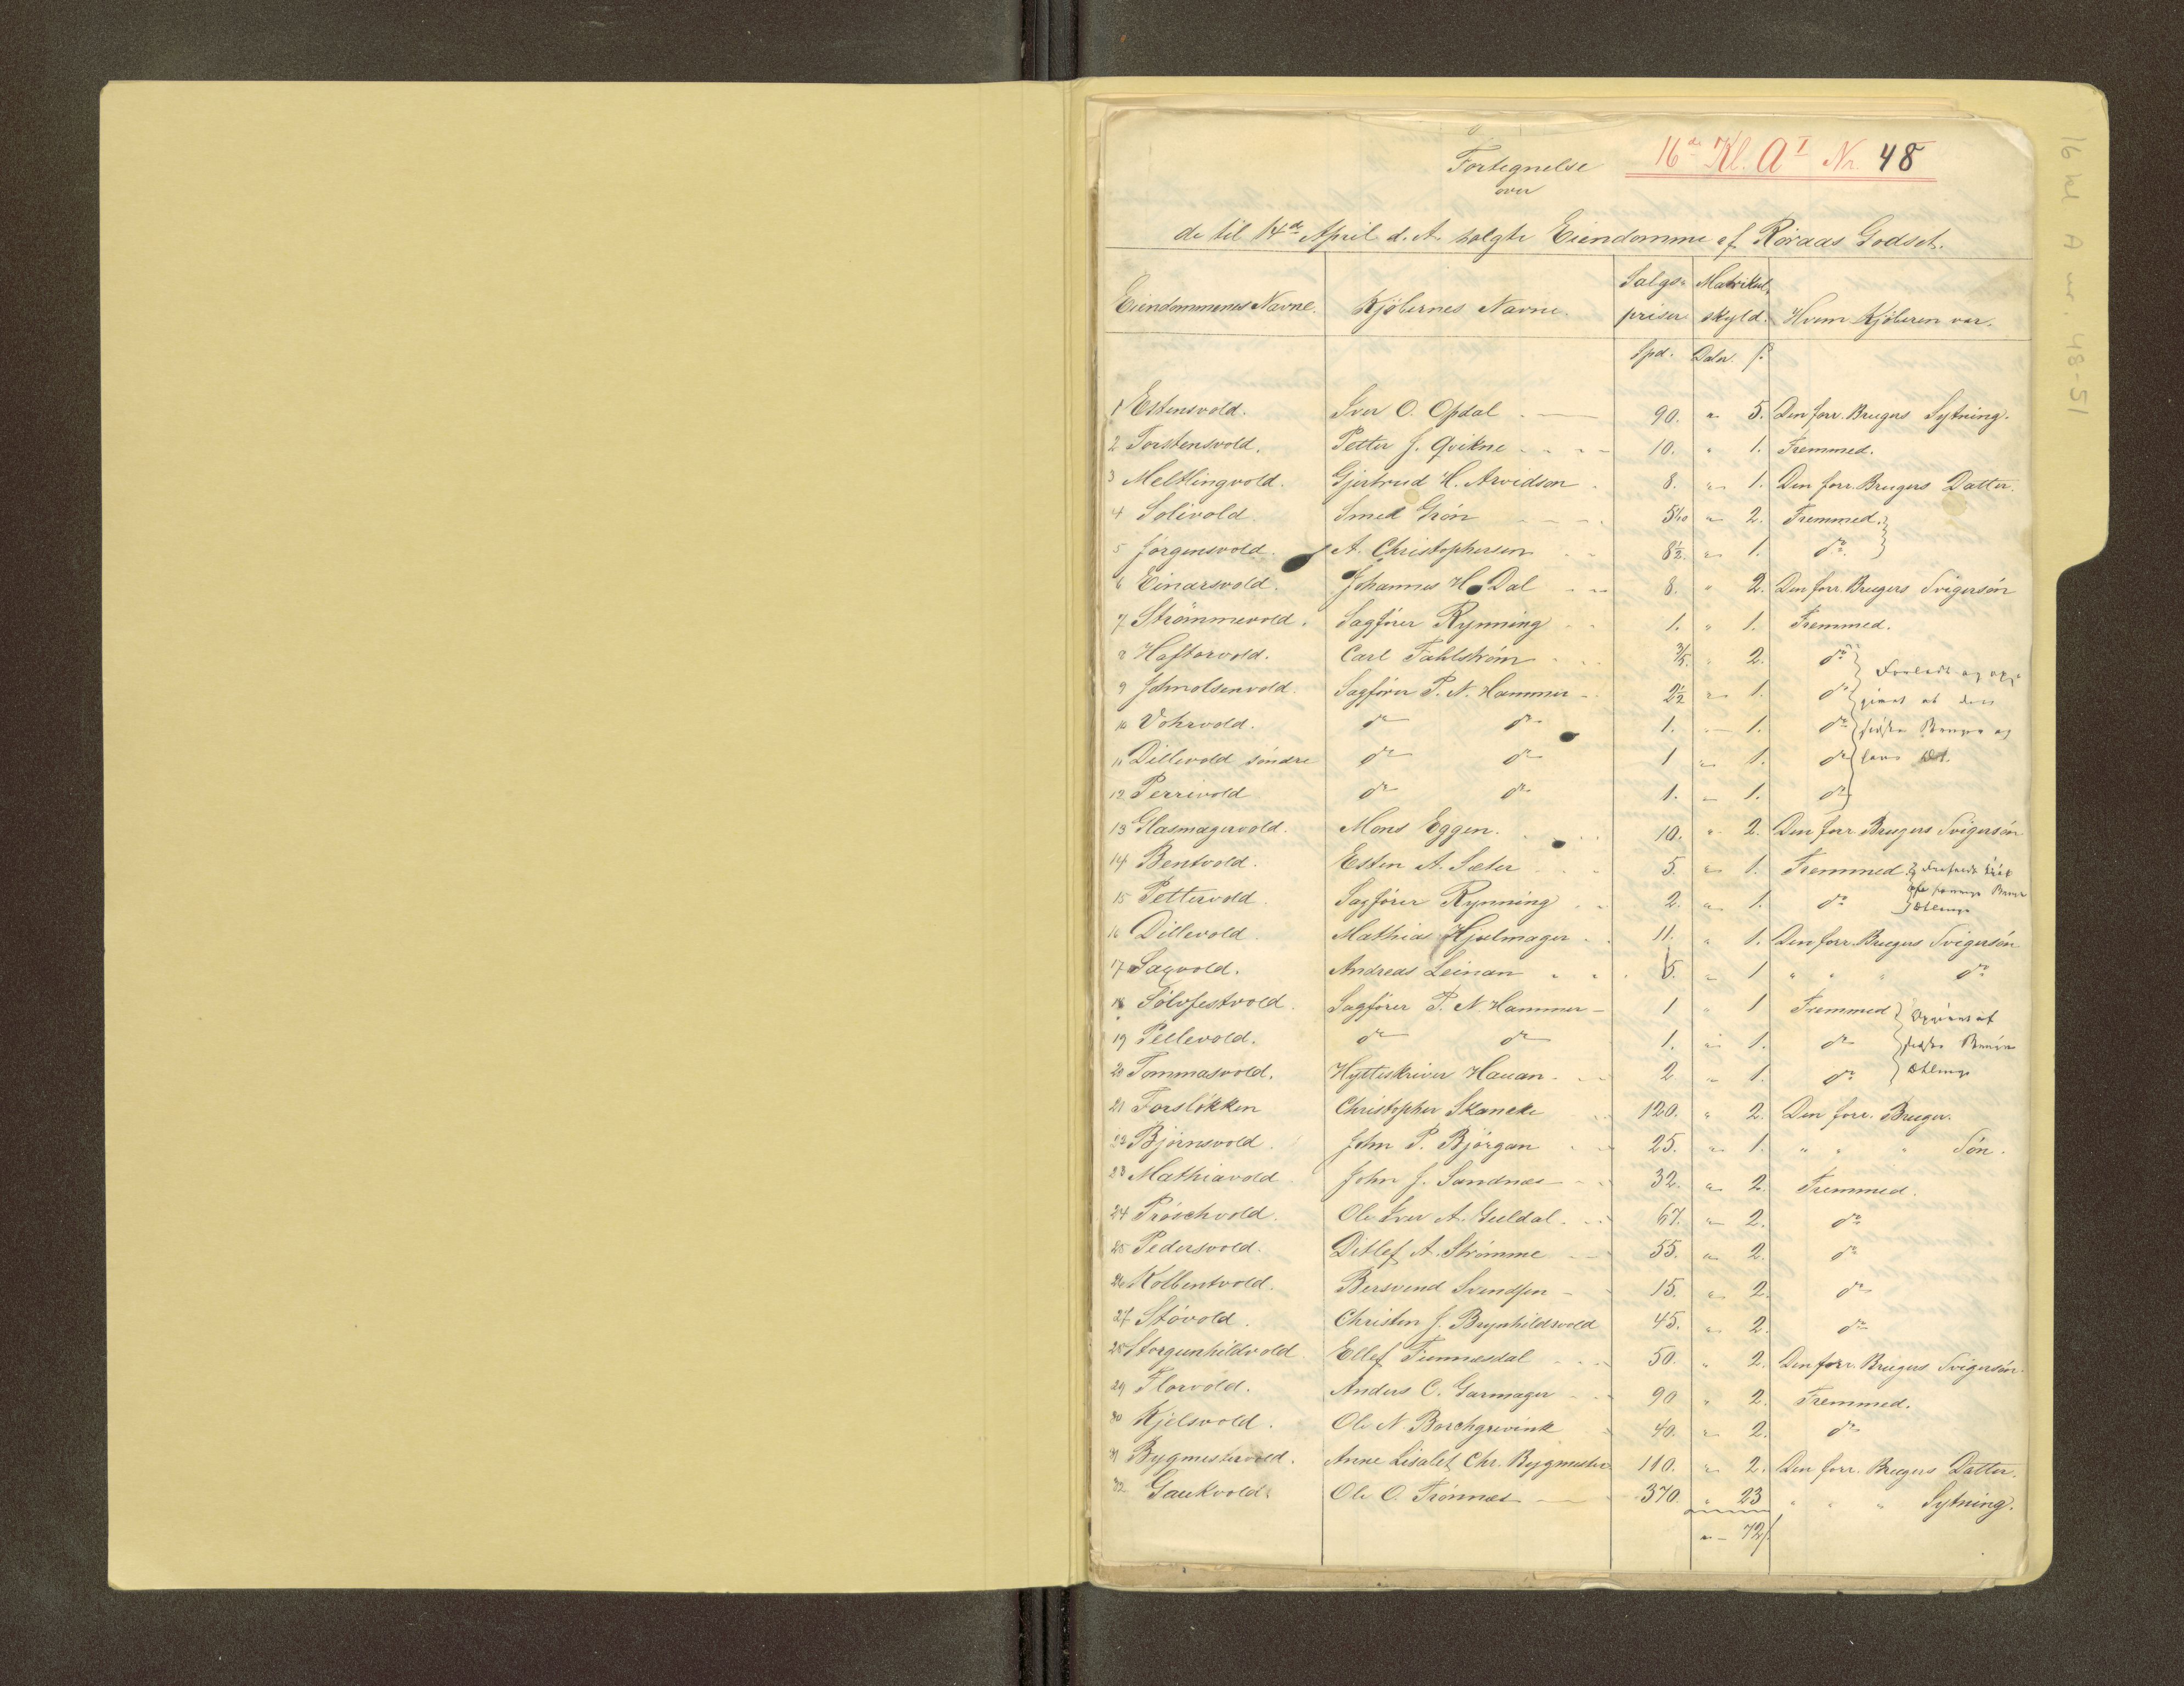 16 kl A nr. 48-51
16de Kl. A I Nr. 48
Fortegnelse
over
de til 14de April d. A. solgte Eiendomme af Röraas Godset.
Eiendommenes Navne. Kjöbernes Navne. Salgs- priser Matrikul, skyld. Hvem Kjöberen var.
Spd. Daler. ß
1 Estensvold. Iver O. Opdal 90. " 5. Den forr. Brugers Sytning.
2 Torstensvold. Petter J. Qvikne 10. " 1. Fremmed.
3 Meltlingvold. Gjertrud H. Arvidson 8. " 1. Den forr. Brugers Datter.
4 Solivold Smed Grön " 2. Fremmed.
5 Jörgensvold. A. Christophersen 8½. " 1. do
6 Einarsvold. Johannes H. Dal 8. " 2. Den forr. Brugers Svigersön
7 Strömmevold. Sagförer Rynning 1. " 1. Fremmed.
8 Haftorvold. Carl Fahlström " 2. do
9 Johnolsenvold. Sagförer P. N. Hammer 2½ " 1. do
10 Vohrvold. do do 1. " 1. do
11 Dillevold söndre do do 1 " 1. do
12 Perrivold do do 1. " 1. do
13 Glasmagervold. Mons Eggen. 10. " 2. Den forr. Brugers Svigersön
14 Bentvold. Esten A. Sæter 5. " 1. Fremmed.
15 Pettervold. Sagförer Rynning 2. " 1. do
16 Dillevold. Mathias Hjulmager 11. " 1. Den forr. Brugers Svigersön
17 Sagvold. Andreas Leinan " 1 " " " do
18 Sölvfestvold. Sagförer P. N. Hammer 1 " 1 Fremmed
19 Pellevold. do do 1. " 1. do
20 Tommasvold. Hytteskriver Hauan 2 " 1. do
21 Forslökken Christopher Skancke 120. " 2. Den forr. Bruger.
22 Björnsvold. John P. Björgan 25. " 1. " " " Sön.
23 Mathiavold John J. Sandnæs 32. " 2. Fremmed.
24 Pröschvold. Ole Iver A. Guldal. 67. " 2. do
25 Pedersvold. Ditlef A. Strömme 55. " 2. do
26 Kolbentvold. Bersvend Svendsen 15. " 2. do
27 Stövold. Christen J. Brynhildsvold 45. " 2. do
28 Storgunhildvold Ellef Tunnæsdal 50. " 2. Den forr. Brugers Svigersön.
29 Florvold. Anders C. Garmager 90 " 2. Fremmed.
30 Kjelsvold. Ole N Borchgrevink 40. " 2. do
31 Bygmestervold. Anne Lisabet Chr. Bygmester 110. " 2. Den forr. Brugers Datter.
32 Gaukvold. Ole O. Trönnes 370. " 23 " " " Sytning.
" 72ß